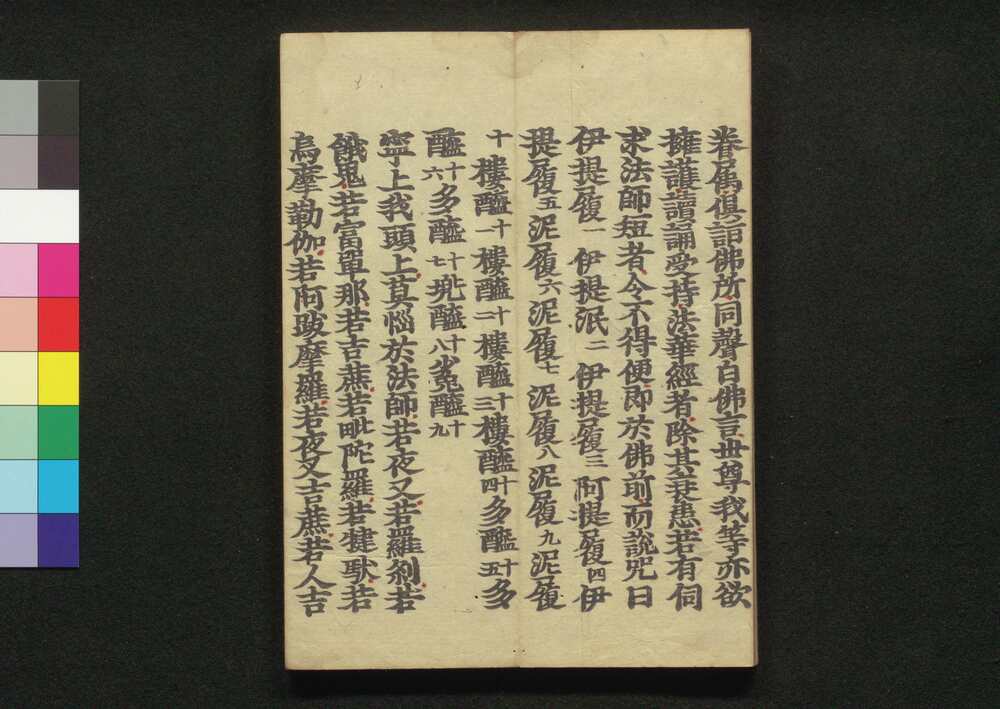 眷属俱詣佛所同聲白佛言世尊我等亦欲
擁護讀誦受持法華經者除其衰患若有伺
求法師短者令不得便即於佛前而說咒曰
伊提履一伊提泯二伊提履三阿提履四伊
提履五泥履六泥履七泥履八泥履九泥履
十樓醯十一樓醯十二樓醯十三樓醯十四多醯十五多
醯十六多醯十七兜醯十八㝹醯十九
寧上我頭上莫惱於法師若夜叉若羅剎若
餓鬼若富單那若吉蔗若毗陀羅若犍馱若
烏摩勒伽若阿跋摩羅若夜叉吉蔗若人吉